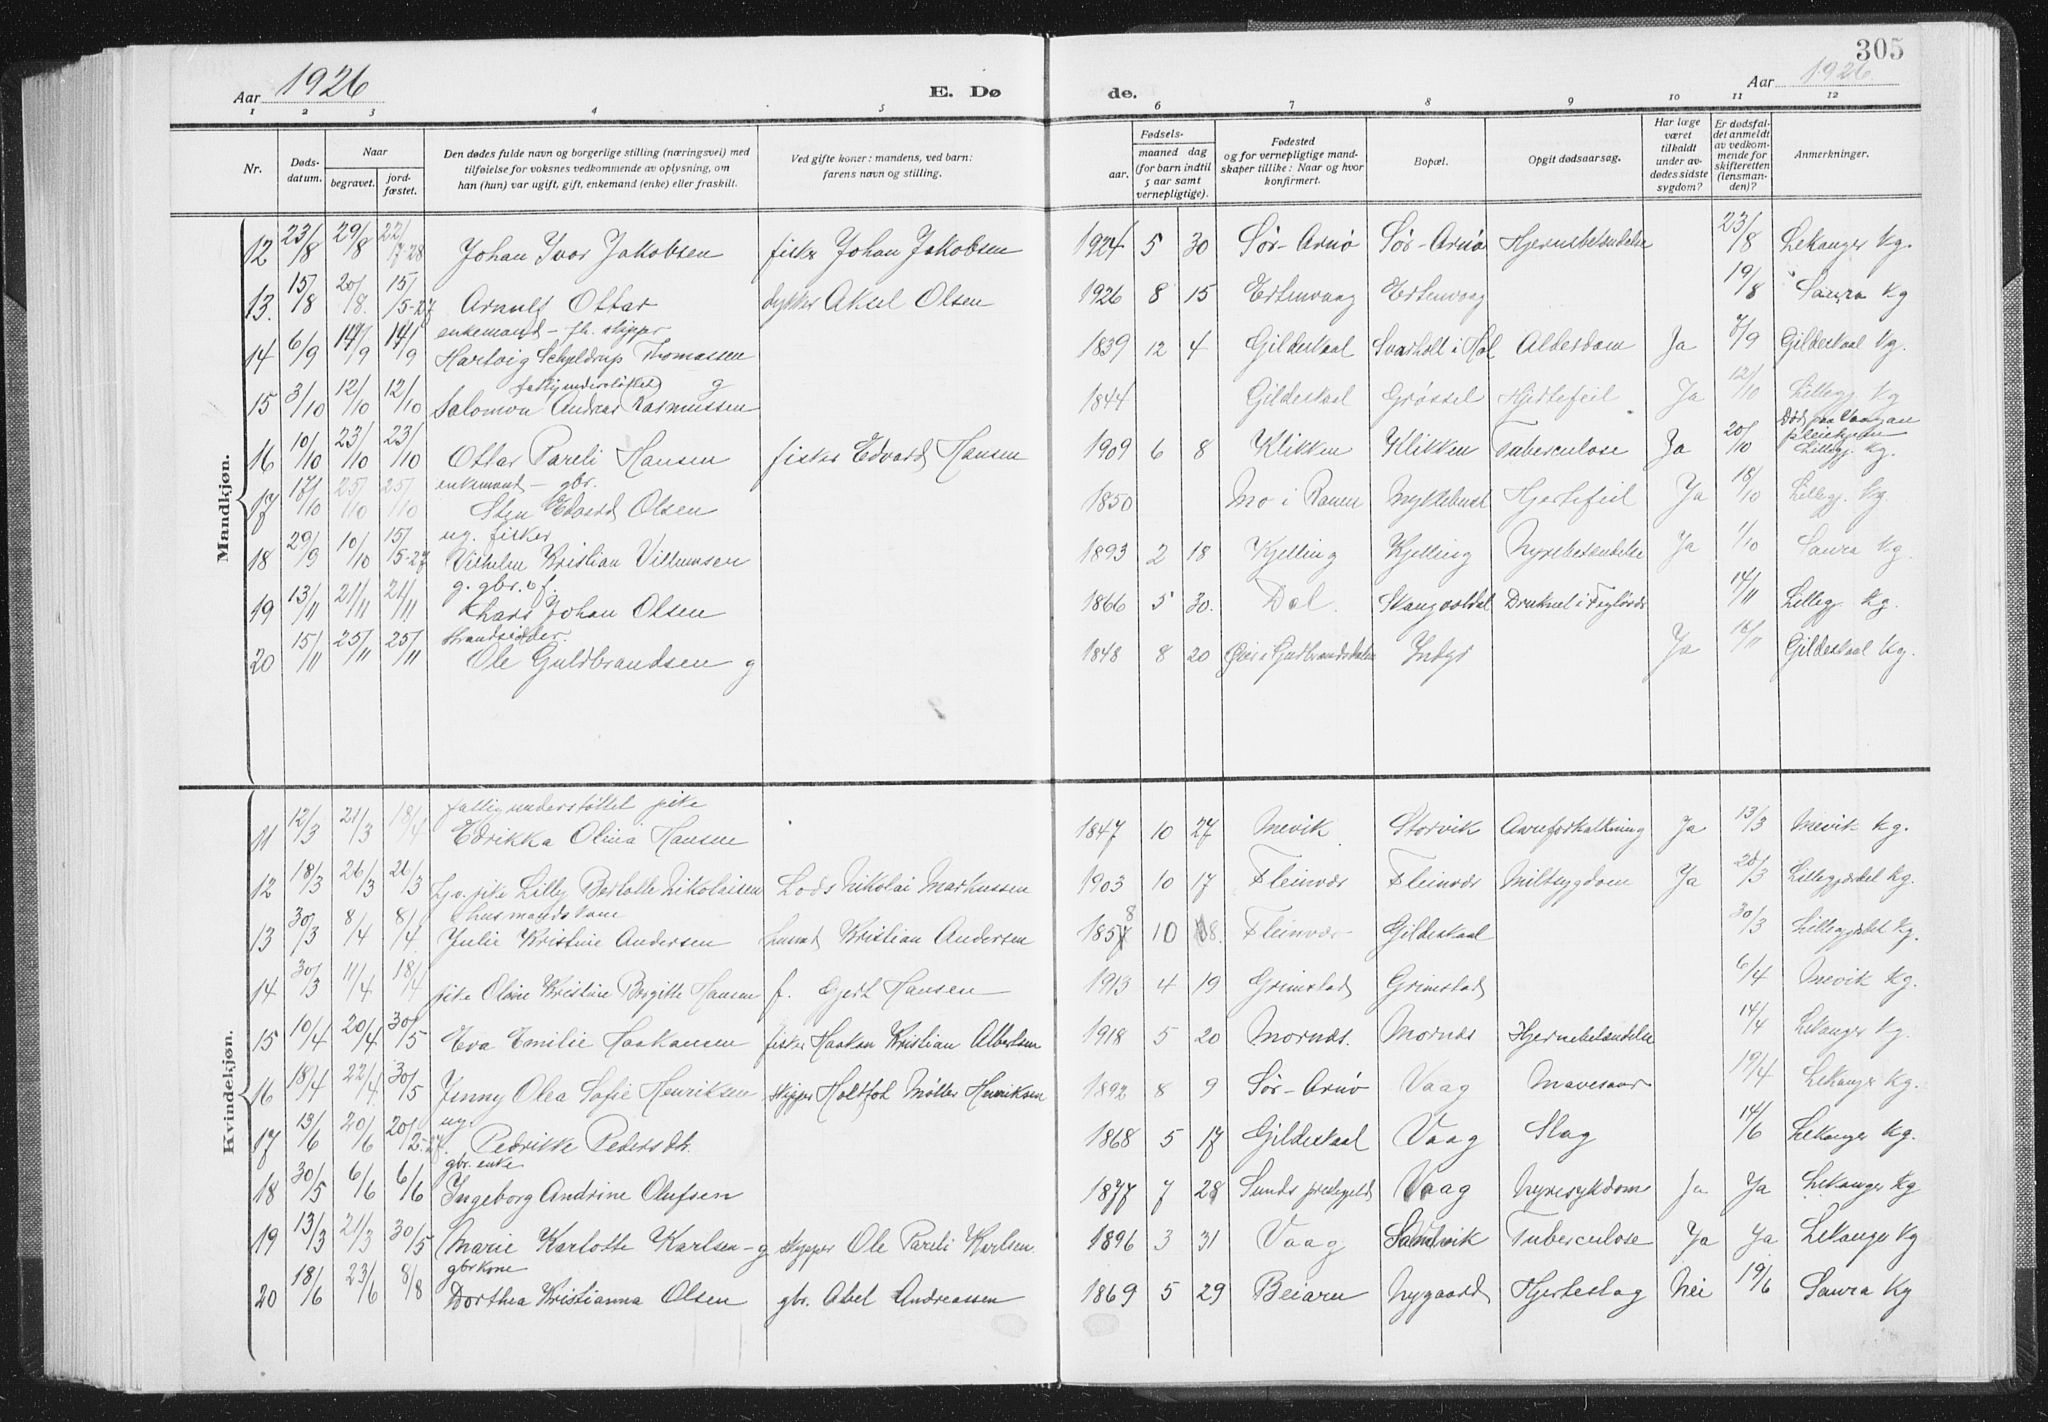 305
Aar 1926 E. Dø de. Aar 1926
1 2 3 4 5 6 7 8 9 10 11 12
Nr. Døds-datum. Naar begravet. jord-fæstet. Den dødes fulde navn og borgerlige stilling (næringsvei) med tilføielse for voksnes vedkommende av oplysning, om han (hun) var ugift, gift, enkemand (enke) eller fraskilt. Ved gifte koner: mandens, ved barn: farens navn og stilling. Fødsels- aar. maaned dag (for barn indtil 5 aar samt vernepligtige). Fødested og for vernepligtige mandskaper tillike: Naar og hvor konfirmert. Bopæl. Opgit dødsaarsag. Har læge været tilkaldt under avdødes sidste sygdom? Er dødsfaldet anmeldt av vedkommende for skifteretten (lensmanden)? Anmerkninger.
Mandkjøn.
12 23/8 29/8 22/17-28 Johan Ivar Jakobsen fisker Johan Jakobsen 1924 5 30 Sør-Arnø Sør-Arnø Hjernebetændelse 23/8 Lekanger kg.
13. 15/8 20/8. 15/5-27 Arnulf Ottar dykker Aksel Olsen 1926 8 15 Ertenvaag Ertenvaag 19/8 Saura kg
enkemand - fh. skipper
14 6/9 14/9 14/9 Hartvig Schjeldrup Thomassen 1839 12 4 Gildeskaal Svartholt i Hol Aldersdom Ja 8/9 Gildeskaal kg.
fattigunderstøttet g
15 3/10 12/10 12/10 Salomon Andreas Rasmussen 1844 Gildeskaal Grøssel Hjertefeil Ja 12/10 Lillegj. kg
16 10/10 23/10 23/10 Ottar Pareli Hansen fisker Edvard Hansen 1909 6 8 Klikken Klikken Tuberculose Ja 20/10 Død paa Vaagan pleiehjem Lillegj. kg.
enkemand - gbr.
17 17/10 25/10 25/10 Sten Edvard Olsen 1850 Mo i Ranen Mykkebust Hjertefeil Ja 18/10 Lillegj. kg.
ug. fisker
18 29/9 10/10 15/5-27 Vilhelm Kristian Villumsen 1893 2 18 Kjelling Kjelling Nyrebetændelse Ja 1/10 Saura kg.
g. gbr. o f.
19 13/11 21/11 21/11 Khars Johan Olsen 1866 5 30. Dal. Skaugvoldal Druknet i 14/11 Lillegj. kg.
strandsidder.
20 15/11 25/11 25/11 Ole Guldbrandsen g 1848 8 20 Øier i Gudbrandsdalen Indyr Ja 16/11 Gildeskaal kg.
Kvindekjøn.
fattigunderstøttet pike
11 12/3 21/3 18/4 Edrikka Olina Hansen 1847 10 27 Mevik Storvik Aareforkalkning Ja 13/3 Mevik kg.
12 18/3 26/3 26/3 pike Lilly Berlotte Nikolaisen Lods Nikolai Markussen 1903 10 17 Fleinvær Fleinvær Miltsygdom Ja 20/3 Lillegjærdet kg.
husmandskone
13 30/3 8/4 8/4 Julie Kristine Andersen husmd Kristian Andersen 1858 10 18. Fleinvær Gildeskaal 30/3 Lillegjærdet kg.
14 30/3 11/4 18/4 pike Oline Kristine Bergitte Hansen f. Gert Hansen 1913 4 19 Grimstad Grimstad 6/4 Mevik kg.
15 10/4 20/4 30/5 Eva Emilie Haakansen fisker Haakon Kristian Albertsen 1918 5 20 Mornæs. Mornæs Hjernebetændelse 14/4 Lekanger kg.
16 18/4 22/4 30/5 Jenny Olea Sofie Henriksen skipper Holtfod Møller Henriksen 1892 8 9 Sør-Arnø Vaag Mavesaar 19/4 Lekanger kg.
ug.
17 13/6 20/6 20/2-27. Pedrikke Pedersdtr. 1868 5 17 Gildeskaal Vaag Slag 14/6 Lekanger kg.
gbr. enke
18 30/5 6/6 6/6 Ingeborg Andrine Olufsen 1877 7 28 Sunds prestegjeld Vaag Nyresykdom Ja Ja Lekanger kg
19 13/3 21/3 30/5 Marie Karlotte Karlsen - g skipper Ole Pareli Karlsen. 1896 3 31 Vaag Sandvik Tuberculose Ja Ja Lekanger kg
gbrkone
20 18/6 23/6 8/8 Dorthea Kristianna Olsen gbr. Abel Andreassen 1869 5 29 Beiarn Nygaard Hjerteslag Nei 19/6 Saura kg